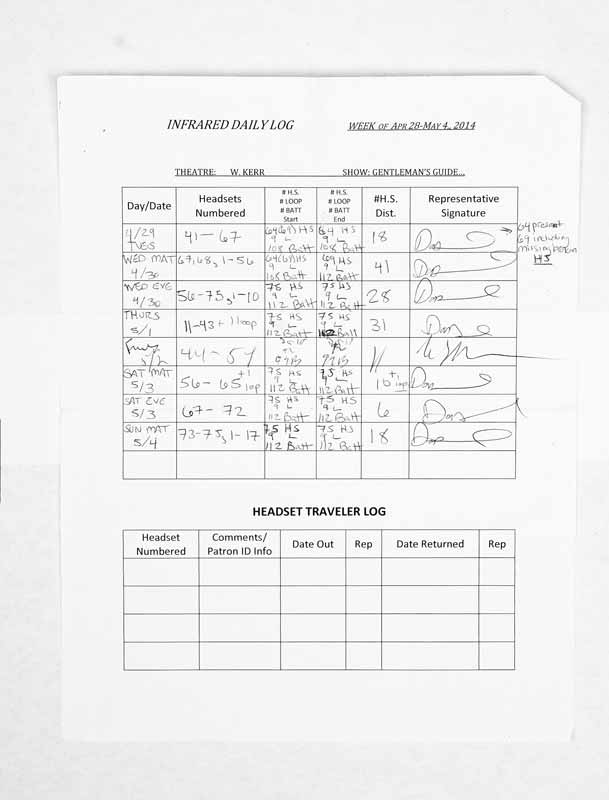 INFRARED DAILY LOG WEEK OF APR 28-MAY 4, 2014
THEATRE: W. KERR SHOW: GENTLEMAN'S GUIDE...
Day/Date Headsets Numbered # H.S. # LOOP # BATT Start # H.S. # LOOP # BATT End #H.S. Dist. Representative Signature
4/29 TUES 41-67 64(69) HS 9 L 108 Batt 64 HS 9 L 108 Batt 18
64 present
69 including
missing
HS
WED MAT 4/30 67, 68, 1-56 64(69) HS 9 L 108 Batt 69 HS 9 L 112 Batt 41
WED EVE 4/30 56-75, 1-10 75 HS 9 L 112 Batt 75 HS 9 L 112 Batt 28
THURS 5/1 11-43 + 1 loop 75 HS 9 L 112 Batt 75 HS 9 L 112 Batt 31
5/2 44-54 11
SAT MAT 5/3 56-65 +1 loop 75 HS 9 L 112 Batt 75 HS 9 L 112 Batt 10 +1 loop
SAT EVE 5/3 67-72 75 HS 9 L 112 Batt 75 HS 9 L 112 Batt 6
SUN MAT 5/4 73-75, 1-17 75 HS 9 L 112 Batt 75 HS 9 L 112 Batt 18
HEADSET TRAVELER LOG
Headset Numbered Comments/ Patron ID Info Date Out Rep Date Returned Rep